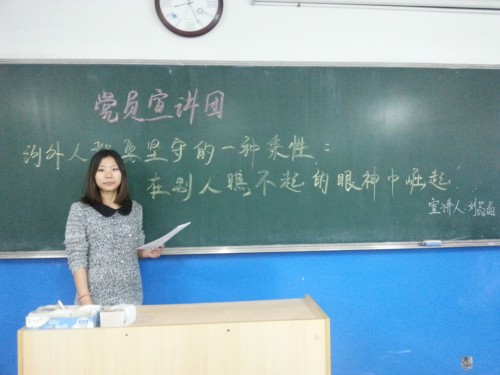 党员宣讲团
外人 坚守的一种秉性：
在别人瞧不起的眼神中崛起
宣讲人：刘晶晶